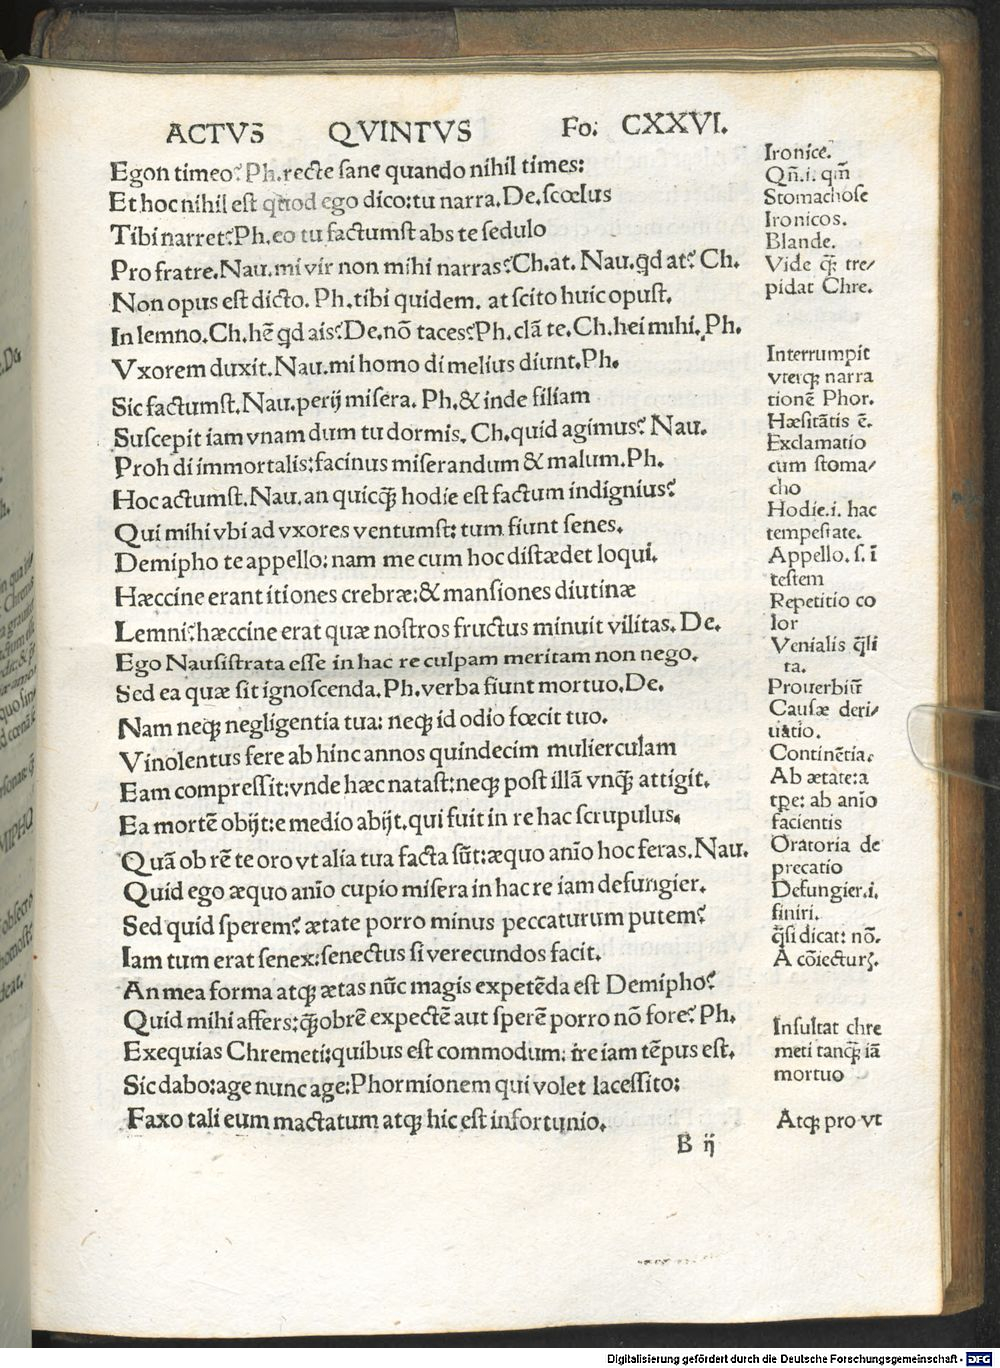 ACTVS QVINTVS Fo: CXXVI.
Egon timeo? Ph. recte sane quando nihil times:
Et hoc nihil est quod ego dico: tu narra. De. scœlus
Tibi narret? Ph. eo tu factumst abs te sedulo
Pro fratre. Nau. mi vir non mihi narras? Ch. at. Nau. qd at? Ch.
Non opus est dicto. Ph. tibi quidem. at scito huic opust.
In lemno. Ch. hẽ qd ais? De. nõ taces? Ph. clã te. Ch. hei mihi. Ph.
Vxorem duxit. Nau. mi homo di melius diunt. Ph.
Sic factumst. Nau. perij misera. Ph. & inde filiam
Suscepit iam vnam dum tu dormis. Ch. quid agimus? Nau.
Proh di immortalis: facinus miserandum & malum. Ph.
Hoc actumst. Nau. an quicq̃ hodie est factum indignius?
Qui mihi vbi ad vxores ventumst: tum fiunt senes.
Demipho te appello: nam me cum hoc distædet loqui.
Hæccine erant itiones crebræ: & mansiones diutinæ
Lemni? hæccine erat quæ nostros fructus minuit vilitas. De.
Ego Nausistrata esse in hac re culpam meritam non nego.
Sed ea quæ sit ignoscenda. Ph. verba fiunt mortuo. De.
Nam neqꝫ negligentia tua: neqꝫ id odio fœcit tuo.
Vinolentus fere ab hinc annos quindecim mulierculam
Eam compressit: vnde hæc natast: neqꝫ post illã vnq̃ attigit.
Ea mortẽ obijt: e medio abijt. qui fuit in re hac scrupulus.
Quã ob rẽ te oro vt alia tua facta sũt: æquo anĩo hoc feras. Nau.
Quid ego æquo anĩo cupio misera in hac re iam defungier.
Sed quid sperem? ætate porro minus peccaturum putem?
Iam tum erat senex: senectus si verecundos facit.
An mea forma atqꝫ ætas nũc magis expetẽda est Demipho?
Quid mihi affers: q̃obrẽ expectẽ aut sperẽ porro nõ fore? Ph.
Exequias Chremeti: quibus est commodum: ire iam tẽpus est.
Sic dabo: age nunc age: Phormionem qui volet lacessito:
Faxo tali eum mactatum atqꝫ hic est infortunio.
B ij
Ironice.
Qñ. i. qm̃
Stomachose
Ironicos.
Blande.
Vide q̃ tre/
pidat Chre.
Interrumpit
vterqꝫ narra
tionẽ Phor.
Hæsitãtis ẽ.
Exclamatio
cum stoma/
cho
Hodie. i. hac
tempestate.
Appello. s. ĩ
testem
Repetitio co
lor
Venialis q̃li
ta.
Prouerbiũ
Causæ deri/
uatio.
Continẽtia.
Ab ætate: a
tp̃e: ab anĩo
facientis
Oratoria de
precatio
Defungier. i.
finiri.
q̃si dicat: nõ.
A cõiecturꝭ.
Insultat chre
meti tanq̃ iã
mortuo
Atqꝫ pro vt
Digitalisierung gefördert durch die Deutsche Forschungsgemeinschaft - DFG